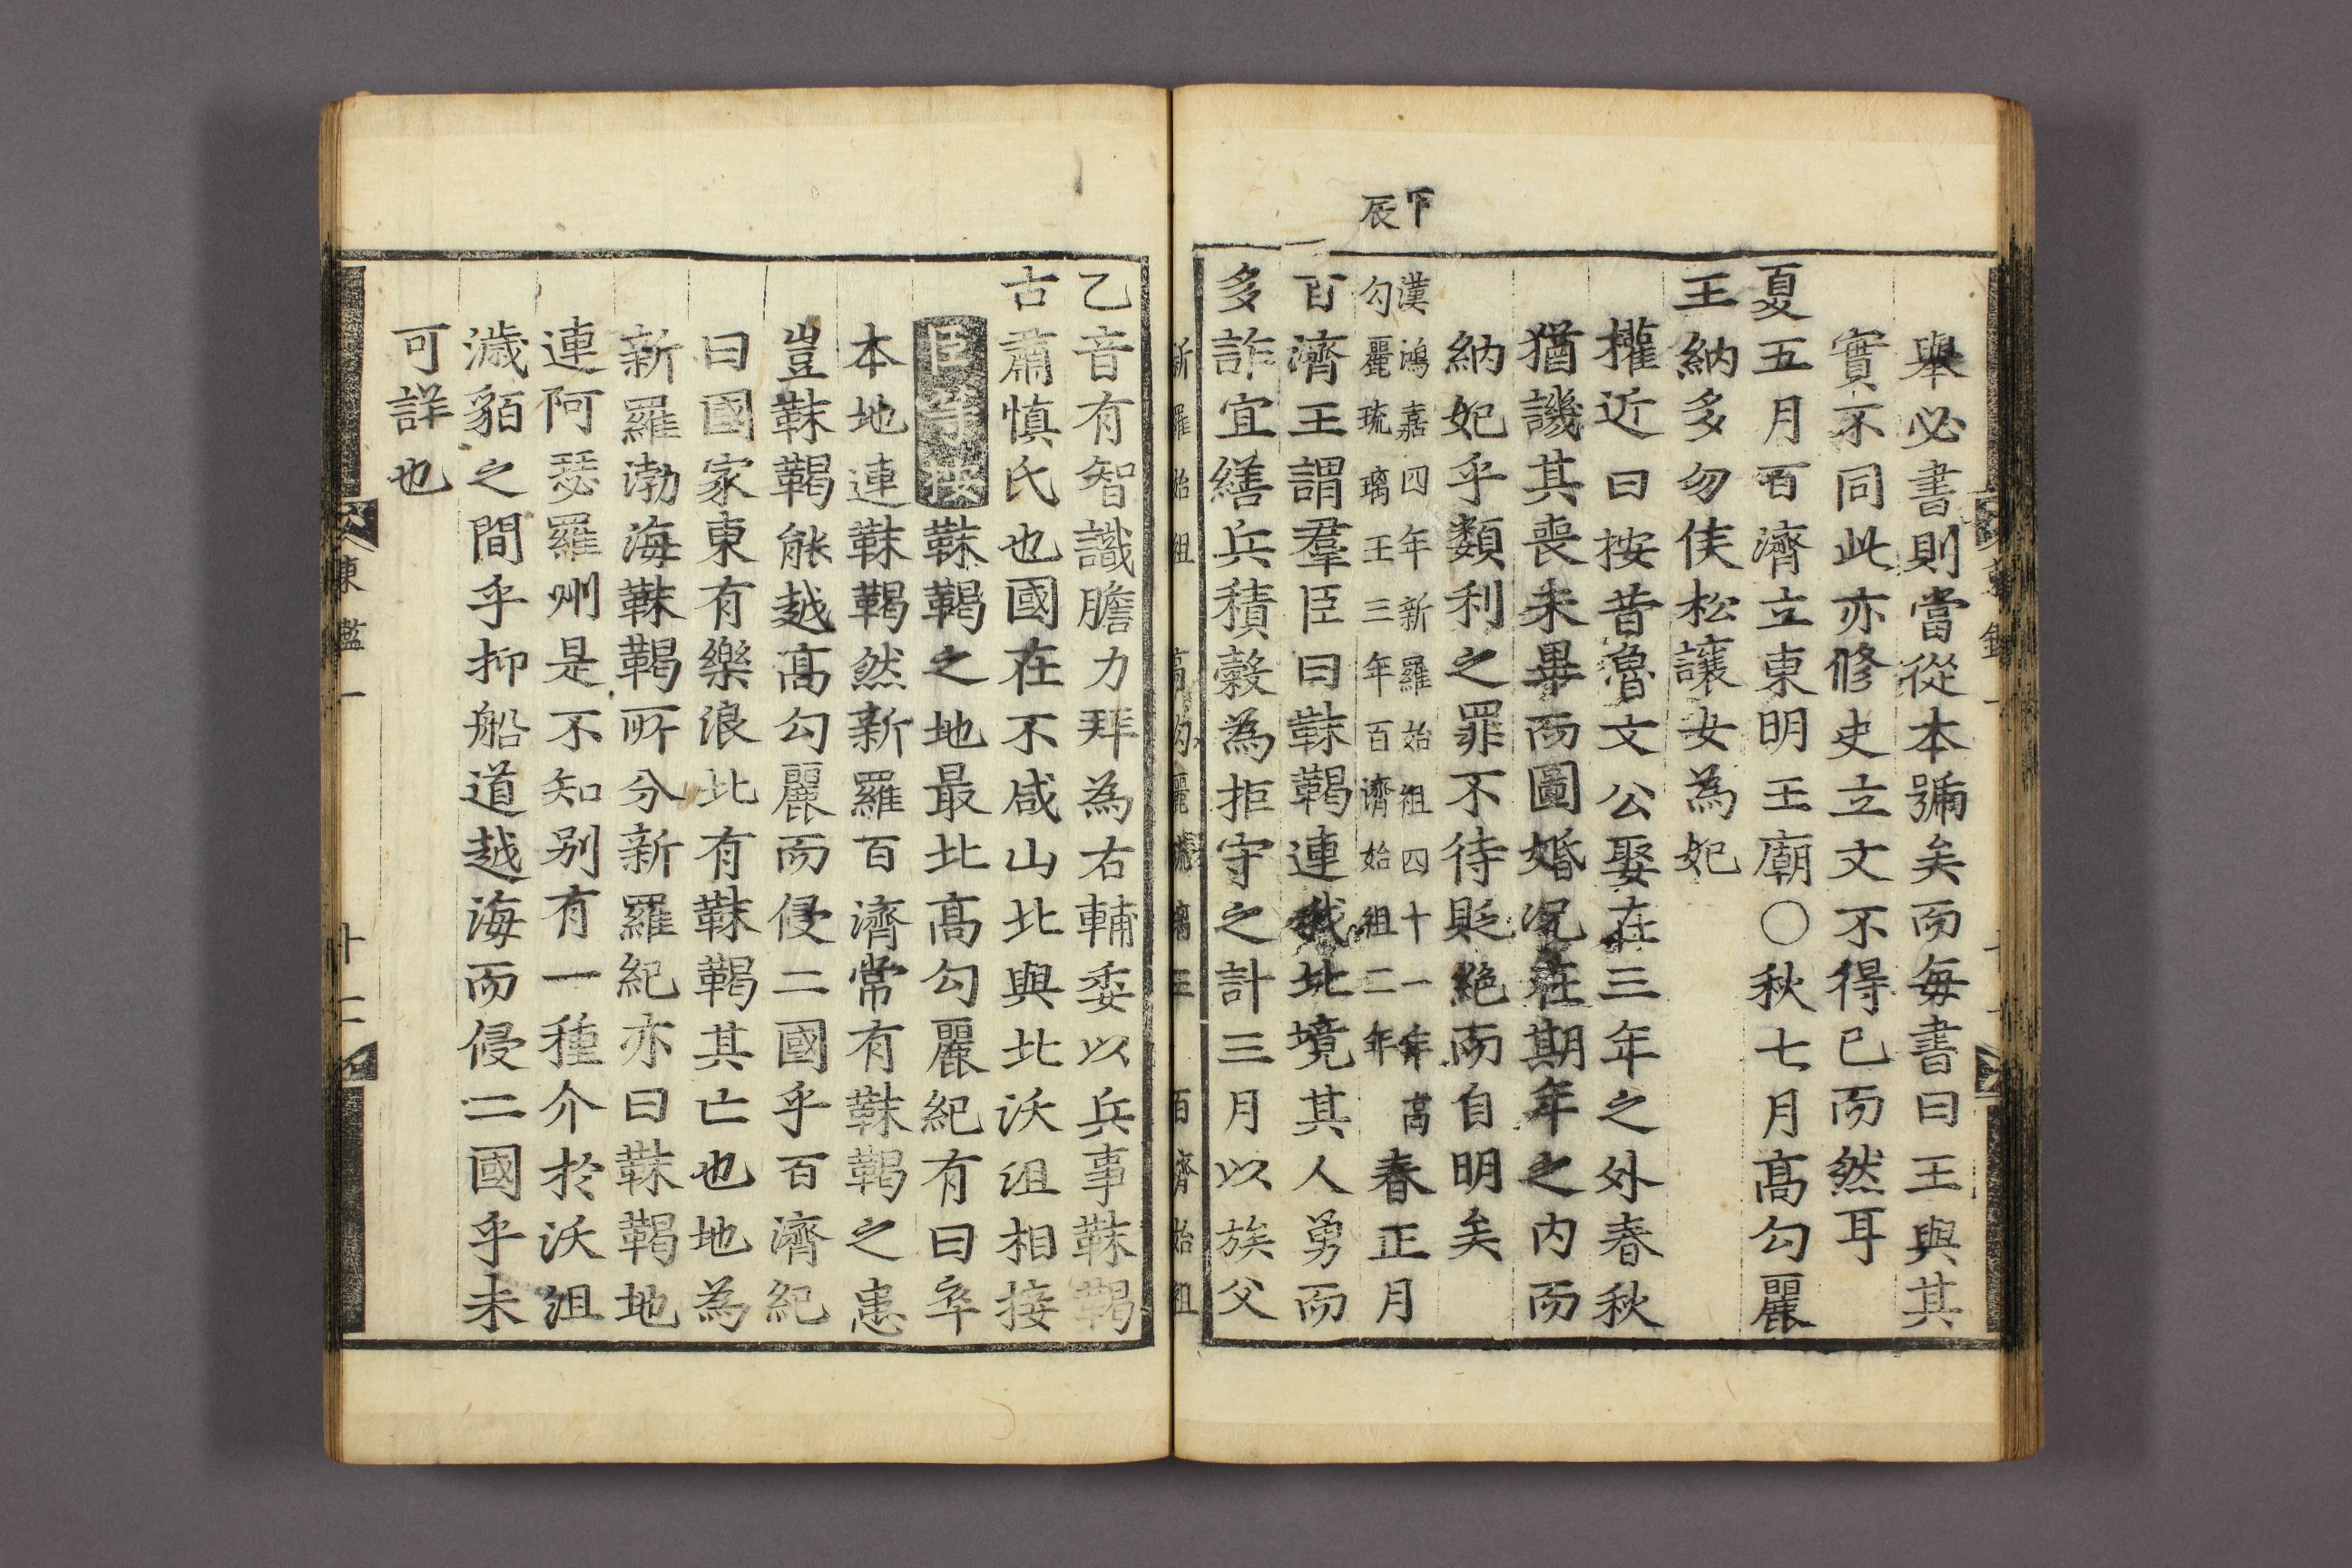 舉必書則當從本號矣而每書曰王與其
實不同此亦修史立文不得已而然耳
夏五月百濟立東明王廟○秋七月高勾麗
王納多勿侯松讓女為妃
權近曰按昔魯文公娶在三年之外春秋
猶譏其喪未畢而圖婚況在期年之內而
納妃乎類利之罪不待貶絶而自明矣
辰
漢鴻嘉四年新羅始祖四十一年高
勾麗琉璃王三年百濟始祖二年
春正月
百濟王謂羣臣曰靺鞨連我北境其人勇而
多詐宜繕兵積穀為拒守之計三月以族父
新羅始祖 高勾麗琉璃王 百濟始祖
乙音有智識膽力拜為右輔委以兵事靺鞨
古肅慎氏也國在不咸山北與北沃沮相接
臣等按靺鞨之地最北高勾麗紀有曰卒
本地連靺鞨然新羅百濟常有靺鞨之患
豈靺鞨能越高勾麗而侵二國乎百濟紀
曰國家東有樂浪北有靺鞨其亡也地為
新羅渤海靺鞨所分新羅紀亦曰靺鞨地
連阿瑟羅州是不知別有一種介於沃沮
濊貊之間乎抑船道越海而侵二國乎未
可詳也
東鑑一
十二